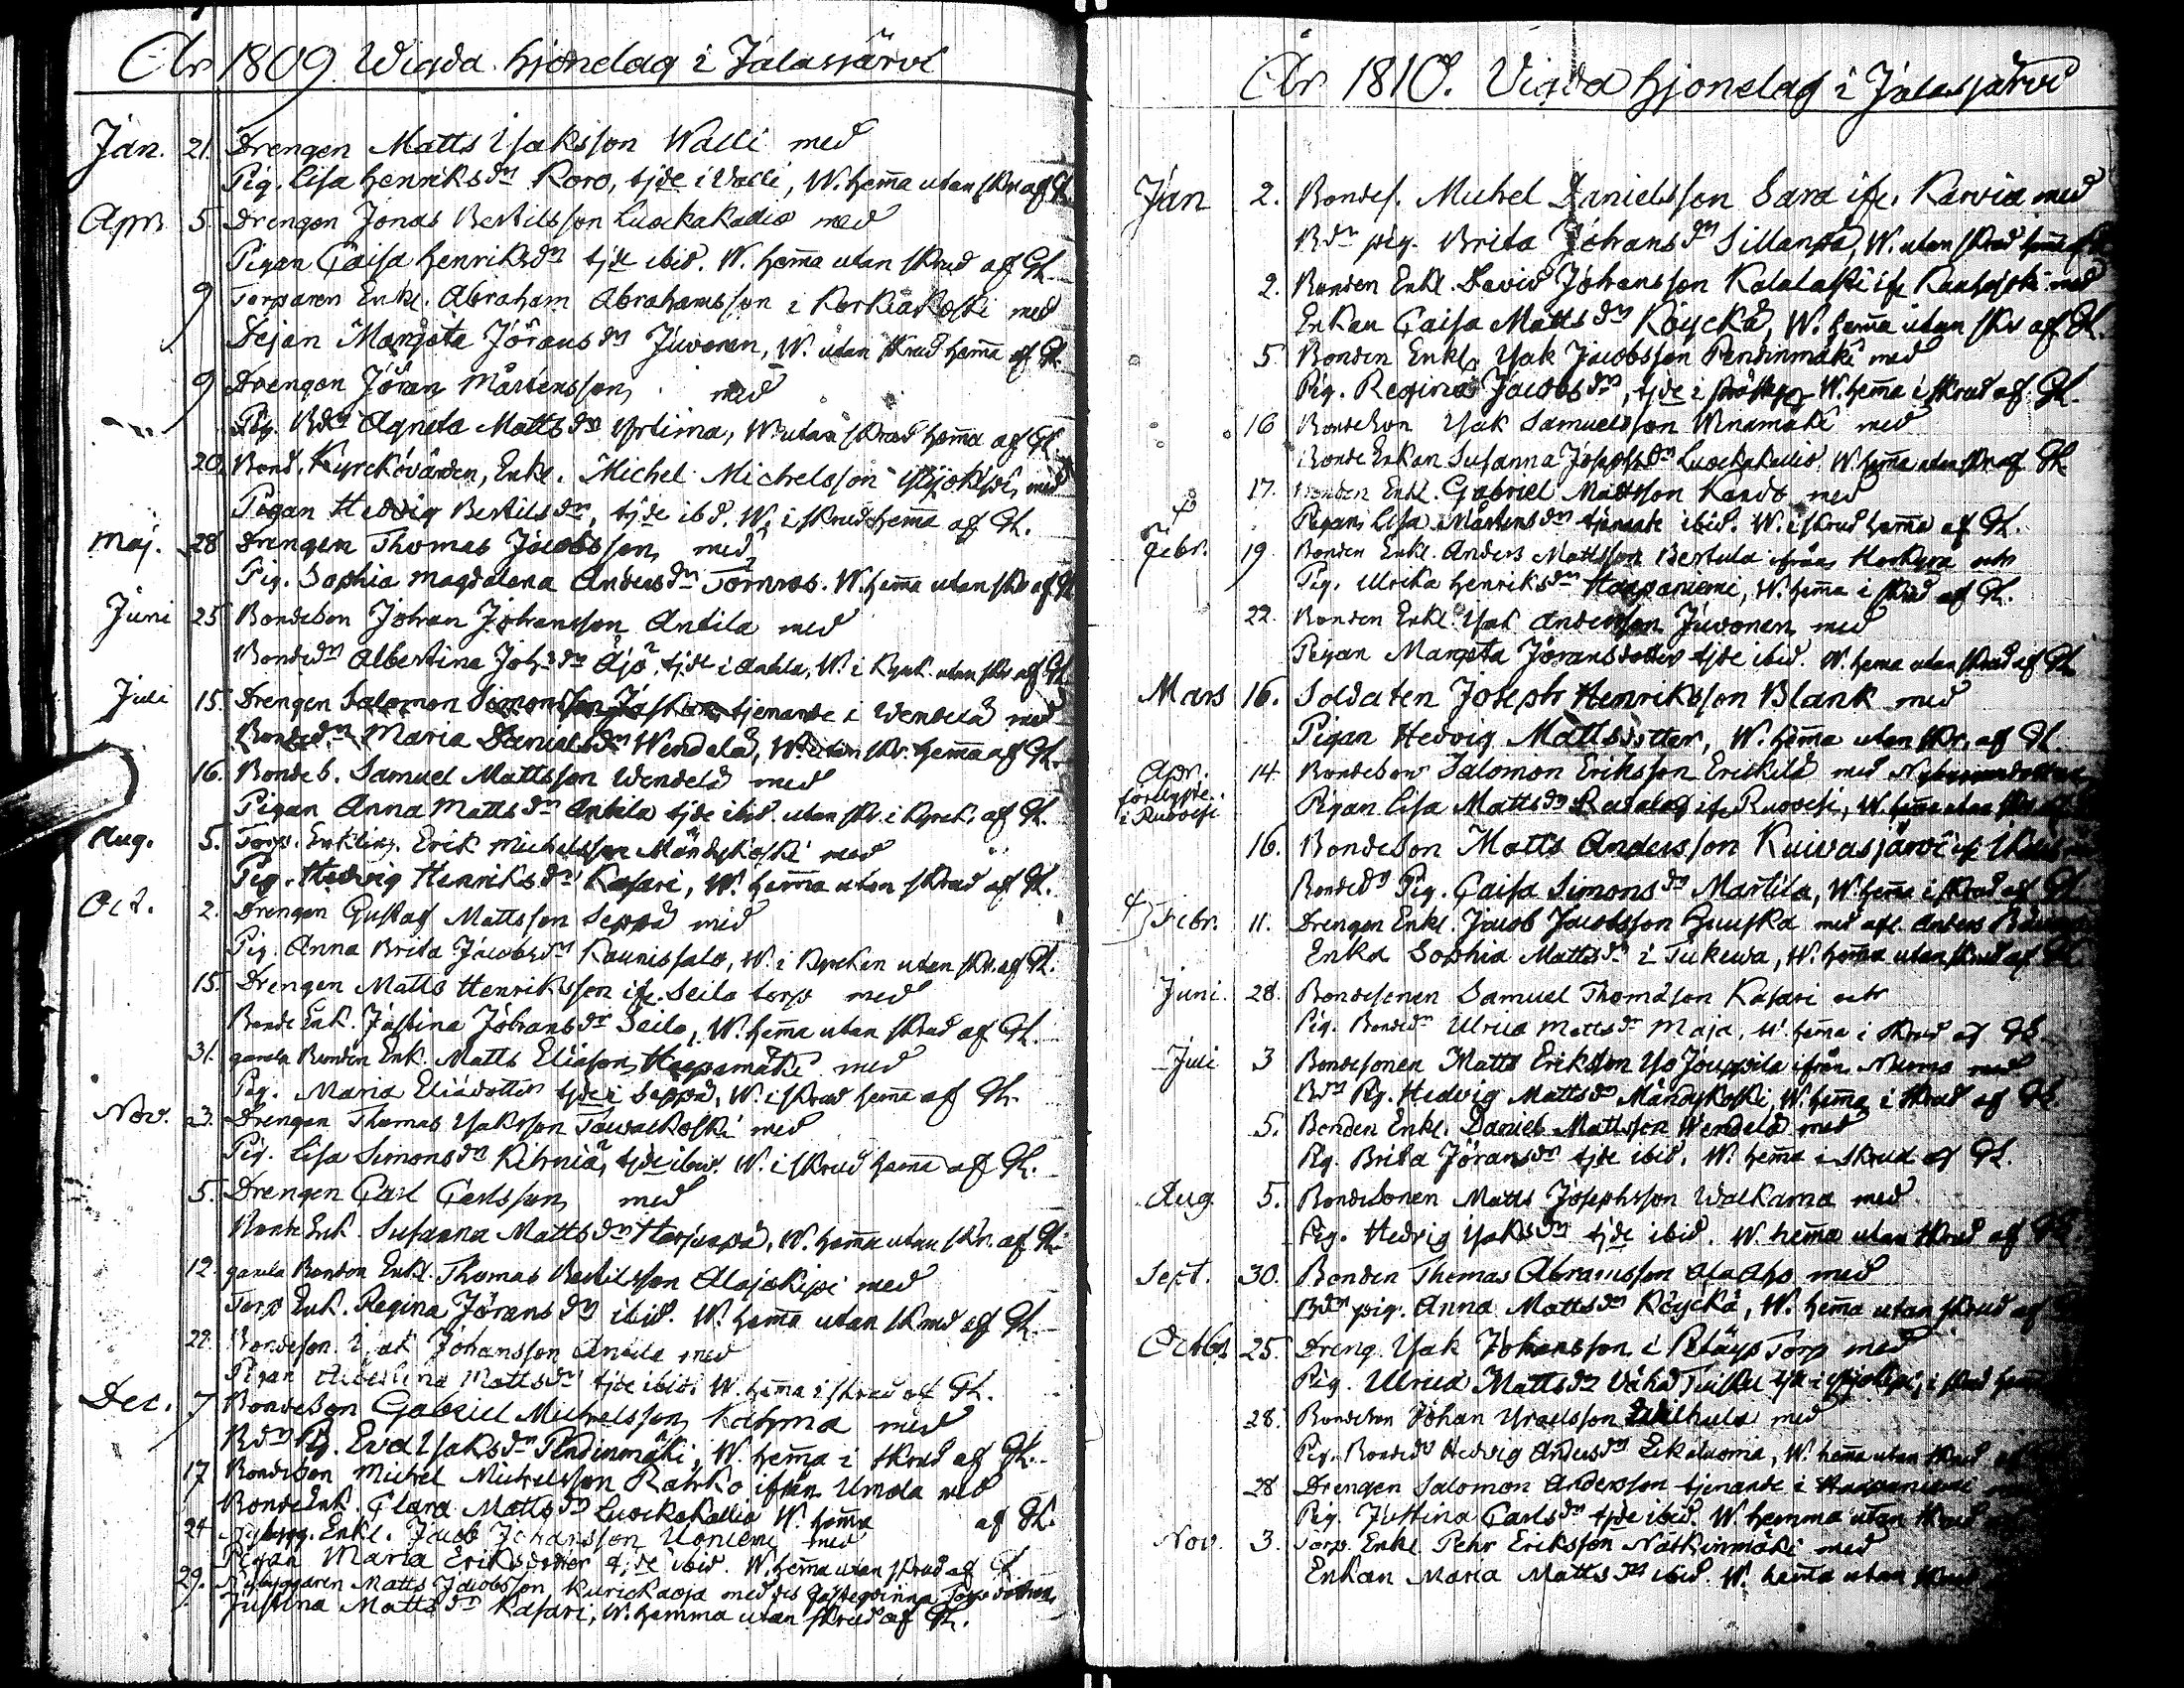 År 1809 Wigda hjonelag i Jalasjärvi
Jan. 21. Drengen Matts Isaksson Walli med
Pig. Lisa Henriksdn Koro, tjde i Valli, W. hemma utan skr af Th.
Apr. 5. Drengen Jonas Bertilsson Luockakallio med
Pigan Caisa Henriksdn tjde ibid. W. hemma utan skrud af Th.
9 Torparen Enkl. Abraham Abrahamsson i Korkiakoski med
Dejan Margeta Jöransdn Juvonen, W. utan skrud hemma af Th.
9 Drengen Jöran Mårtensson med
Pig. Bdn Agneta Mattsdn Yrlima, W. utan skrud hemma af Th.
20. Bond. Kyrckovärden, Enkl. Michel Michelsson med
Pigan Hedvig Bertilsdn, tjde ibd. W. i skrud hemma af Th.
Maj. 28 Drengen Thomas Jacobsson med
Pig. Sophia Magdalena Andersdn Törnros. W. hemma utan skr af Th.
Juni 25 Bondeson Johan Johansson Antila med
Bondedn Albertina Johsdn Ajo, tjde i Antila, W. i Kyrk. utan skr af Th.
Juli 15. Drengen Salomon Simonsson tjenande i Wendelä med
Bondedn Maria Danielsdn Wendelä, W. utan skr. hemma af Th.
16. Bondes. Samuel Mattsson Wendelä med
Pigan Anna Mattsdn Antila tjde ibid. utan skr. i Kyrck. af Th.
Aug. 5. Torp. Enkling. Erik Michelsson Mändykoski med
Pig. Hedvig Henriksdn Kasari, W. hemma utan skrud af Th.
Oct. 2. Drengen Gustaf Mattsson Seppä med
Pig. Anna Brita Jacobsdn Kaunissalo, W. i Kyrckan utan skr. af Th.
15. Drengen Matts Henriksson ifr. Seilo torp med
Bonde Enk. Justina Johansdn Seilo, W. hemma utan skrud af Th.
31. gamla Bonden Enk. Matts Eliason Haapamäki med
Pig. Maria Eliädotter tjde i Seppä, W. i skrud hemma af Th.
Nov. 3. Drengen Thomas Isaksson Taivalkoski med
Pig. Lisa Simonsdn Kihniä, tjde ibid. W. i skrud hemma af Th.
5. Drengen Carl Carlsson med
Bonde Enk. Susanna Mattsdn Harjunpä, W. hemma utan skr. af Th.
12. gamla Bonden Enkl. Thomas Bertilsson Alajokipi med
Torp Enk. Regina Jöransdn ibid. W. hemma utan skrud af Th.
22. Bondeson Isak Johansson Antila med
Pigan Albertina Mattsdn tjde ibid. W. hemma i skrud af Th.
Dec. 7 Bondeson Gabriel Michelsson Kahma med
Bdn Pig. Eva Isaksdn Pendinmäki, W. hemma i skrud af Th.
17 Bondeson Michel Michelsson Rahko ifrån Umola med
Bonde Enk. Clara Mattsdn Luockakallio W. hemma af Th.
24 Nybygg. Enkl. Jacob Johansson Uoniemi med
Pigan Maria Eriksdotter tjde ibid. W. hemma utan skrud af Th.
29. Nybyggaren Matts Jacobsson Kurickaoja med des fästeqvinna Torpdottren
Justina Mattsdn Kasari, W. hemma utan skrud af Th.
År 1810. Vigda hjonelag i Jalasjärvi
Jan 2. Bondes. Michel Danielsson Sara ifr. Karvia med
Bdn pig. Brita Johansdn Sillanpä, W. utan skrud hemma af
2. Bonden Enkl. David Johansson Kalalaski ifr Kauhajoki med
Enkan Caisa Mattsdn Köyckä, W. hemma utan skr af Th.
5 Bonden Enkl. Isak Jacobsson Pendinmäki med
Pig. Regina Jacobsdn, tjde i W. hemma i skrud af Th.
16 Bondeson Isak Samuelsson med
Bonde Enkan Susanna Josephsdn Luockakallio W. hemma utan skr af Th.
17. Bonden Enkl. Gabriel Mattsson Kando med
Pigan Lisa Mårtensdn tjenande ibid. W. i skrud hemma af Th.
Febr. 19. Bonden Enkl. Anders Mattsson Bertula ifrån och
Pig. Ulrika Henriksdn Haapaniemi, W. hemma i skrud af Th.
22. Bonden Enkl. Isak Andersson Juvonen med
Pigan Margeta Jöransdotter tjde ibid. W. hemma utan skrud af Th.
Mars 16. Soldaten Joseph Henriksson Blank med
Pigan Hedvig Mattsdotter, W. hemma utan skr. af Th.
Apr. 14. Bondeson Salomon Eriksson Erickilä med
i Ruovesi Pigan Lisa Mattsdn ifr Ruovesi, W. hemma utan skr af
16. Bondeson Matts Andersson Kuivasjärvi ifr
Bondedn Pig. Caisa Simonsdn Martila, W. hemma i skrud af Th.
Febr. 11. Drengen Enkl. Jacob Jacobsson Huuska med Anders
Enka Sophia Mattsdn i Tukeva, W. hemma utan skrud af Th.
Juni. 28. Bondesonen Samuel Thomason Kasari och
Pig. Bondedn Ulrica Mattsdn Maja, W. hemma i skrud af Th.
Juli 3 Bondesonen Matts Erikson Iso Jouppila ifrån Nurmo med
Bdn Pig. Hedvig Mattsdn Mändykoski, W. hemma i skrud af Th.
5. Bonden Enkl. Daniel Mattsson Wendelä med
Pig. Brita Jöransdn tjde ibid. W. hemma i skrud af Th.
Aug. 5. Bondesonen Matts Josephsson Walkama med
Pig. Hedvig Isaksdn tjde ibid. W. hemma utan skrud af Th.
Sept. 30. Bonden Thomas Abramsson Ala Aho med
Bdn pig. Anna Mattsdn Köyckä, W. hemma utan skrud af
Octobr 25. Dreng. Isak Johansson i Petäys Torp med
Pig. Ulrica Mattsdn i skrud hemma
28. Bondeson Johan Israelsson med
Pig. Bondedn Hedvig Andersdn Leikeluoma, W. hemma utan skrud af
28 Drengen Salomon Andersson tjenande i Haapaniemi
Pig. Justina Carlsdn tjde ibid. W. hemma utan skrud
Nov. 3. Torp. Enkl Pehr Eriksson Nätkinmäki med
Enkan Maria Mattsdn ibid. W. hemma utan skrud